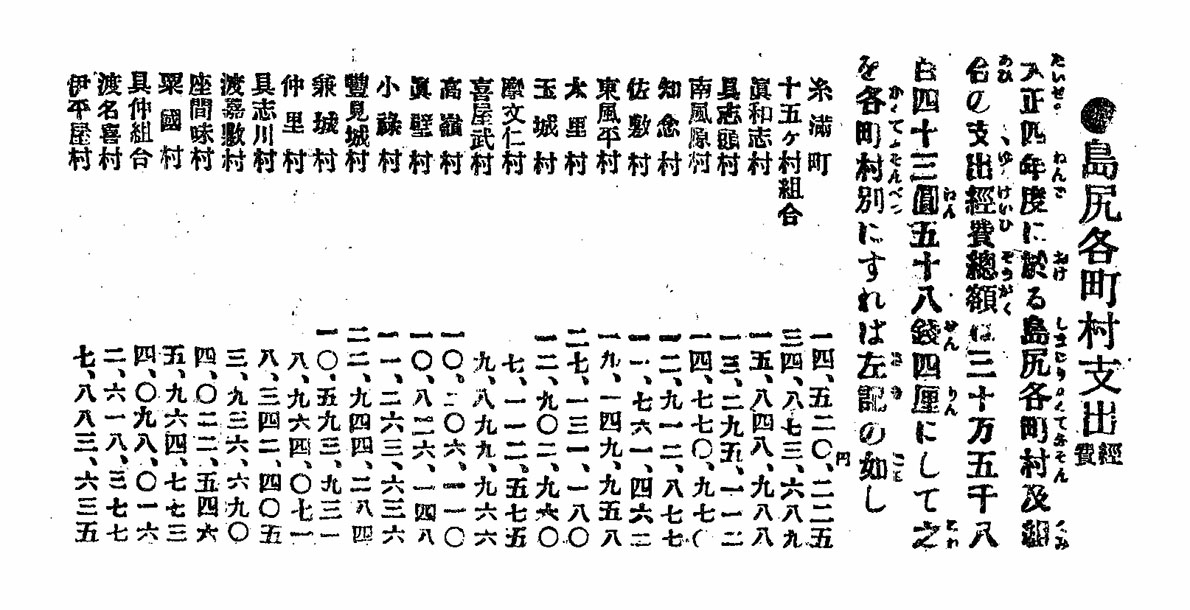 ●島尻各町村支出經費
大正四年度に於る島尻各町村及組
合の支出經費總額は三十万五千八
百四十三圓五十八錢四厘にして之
を各町村別にすれは左記の如し
円
糸滿町 一四、五二〇、二二五
十五ヶ村組合 三四、八七三、六八九
眞和志村 一五、八四八、九八八
具志頭村 一三、二九五、一一二
南風原村 一四、七七〇、九七〇
知念村 一二、九一二、八七七
佐敷村 一一、七六一、四六二
東風平村 一九、一四九、九五八
大里村 二七、一三一、一八〇
玉城村 一二、九〇二、九六〇
摩文仁村 七、一一二、五七五
喜屋武村 九、八九九、九六六
高嶺村 一〇、二〇六、一一〇
眞壁村 一〇、八二六、一四八
小祿村 一一、二六三、六三六
豐見城村 二二、九四四、二八四
兼城村 一〇、五九三、九三一
仲里村 八、九六四、〇七一
具志川村 八、三四二、四〇五
渡嘉敷村 三、九三六、六九〇
座間味村 四、〇二二、五四六
粟國村 五、九六四、七七三
具仲組合 四、〇九八、〇一六
渡名喜村 二、六一八、三七七
伊平屋村 七、八八三、六三五